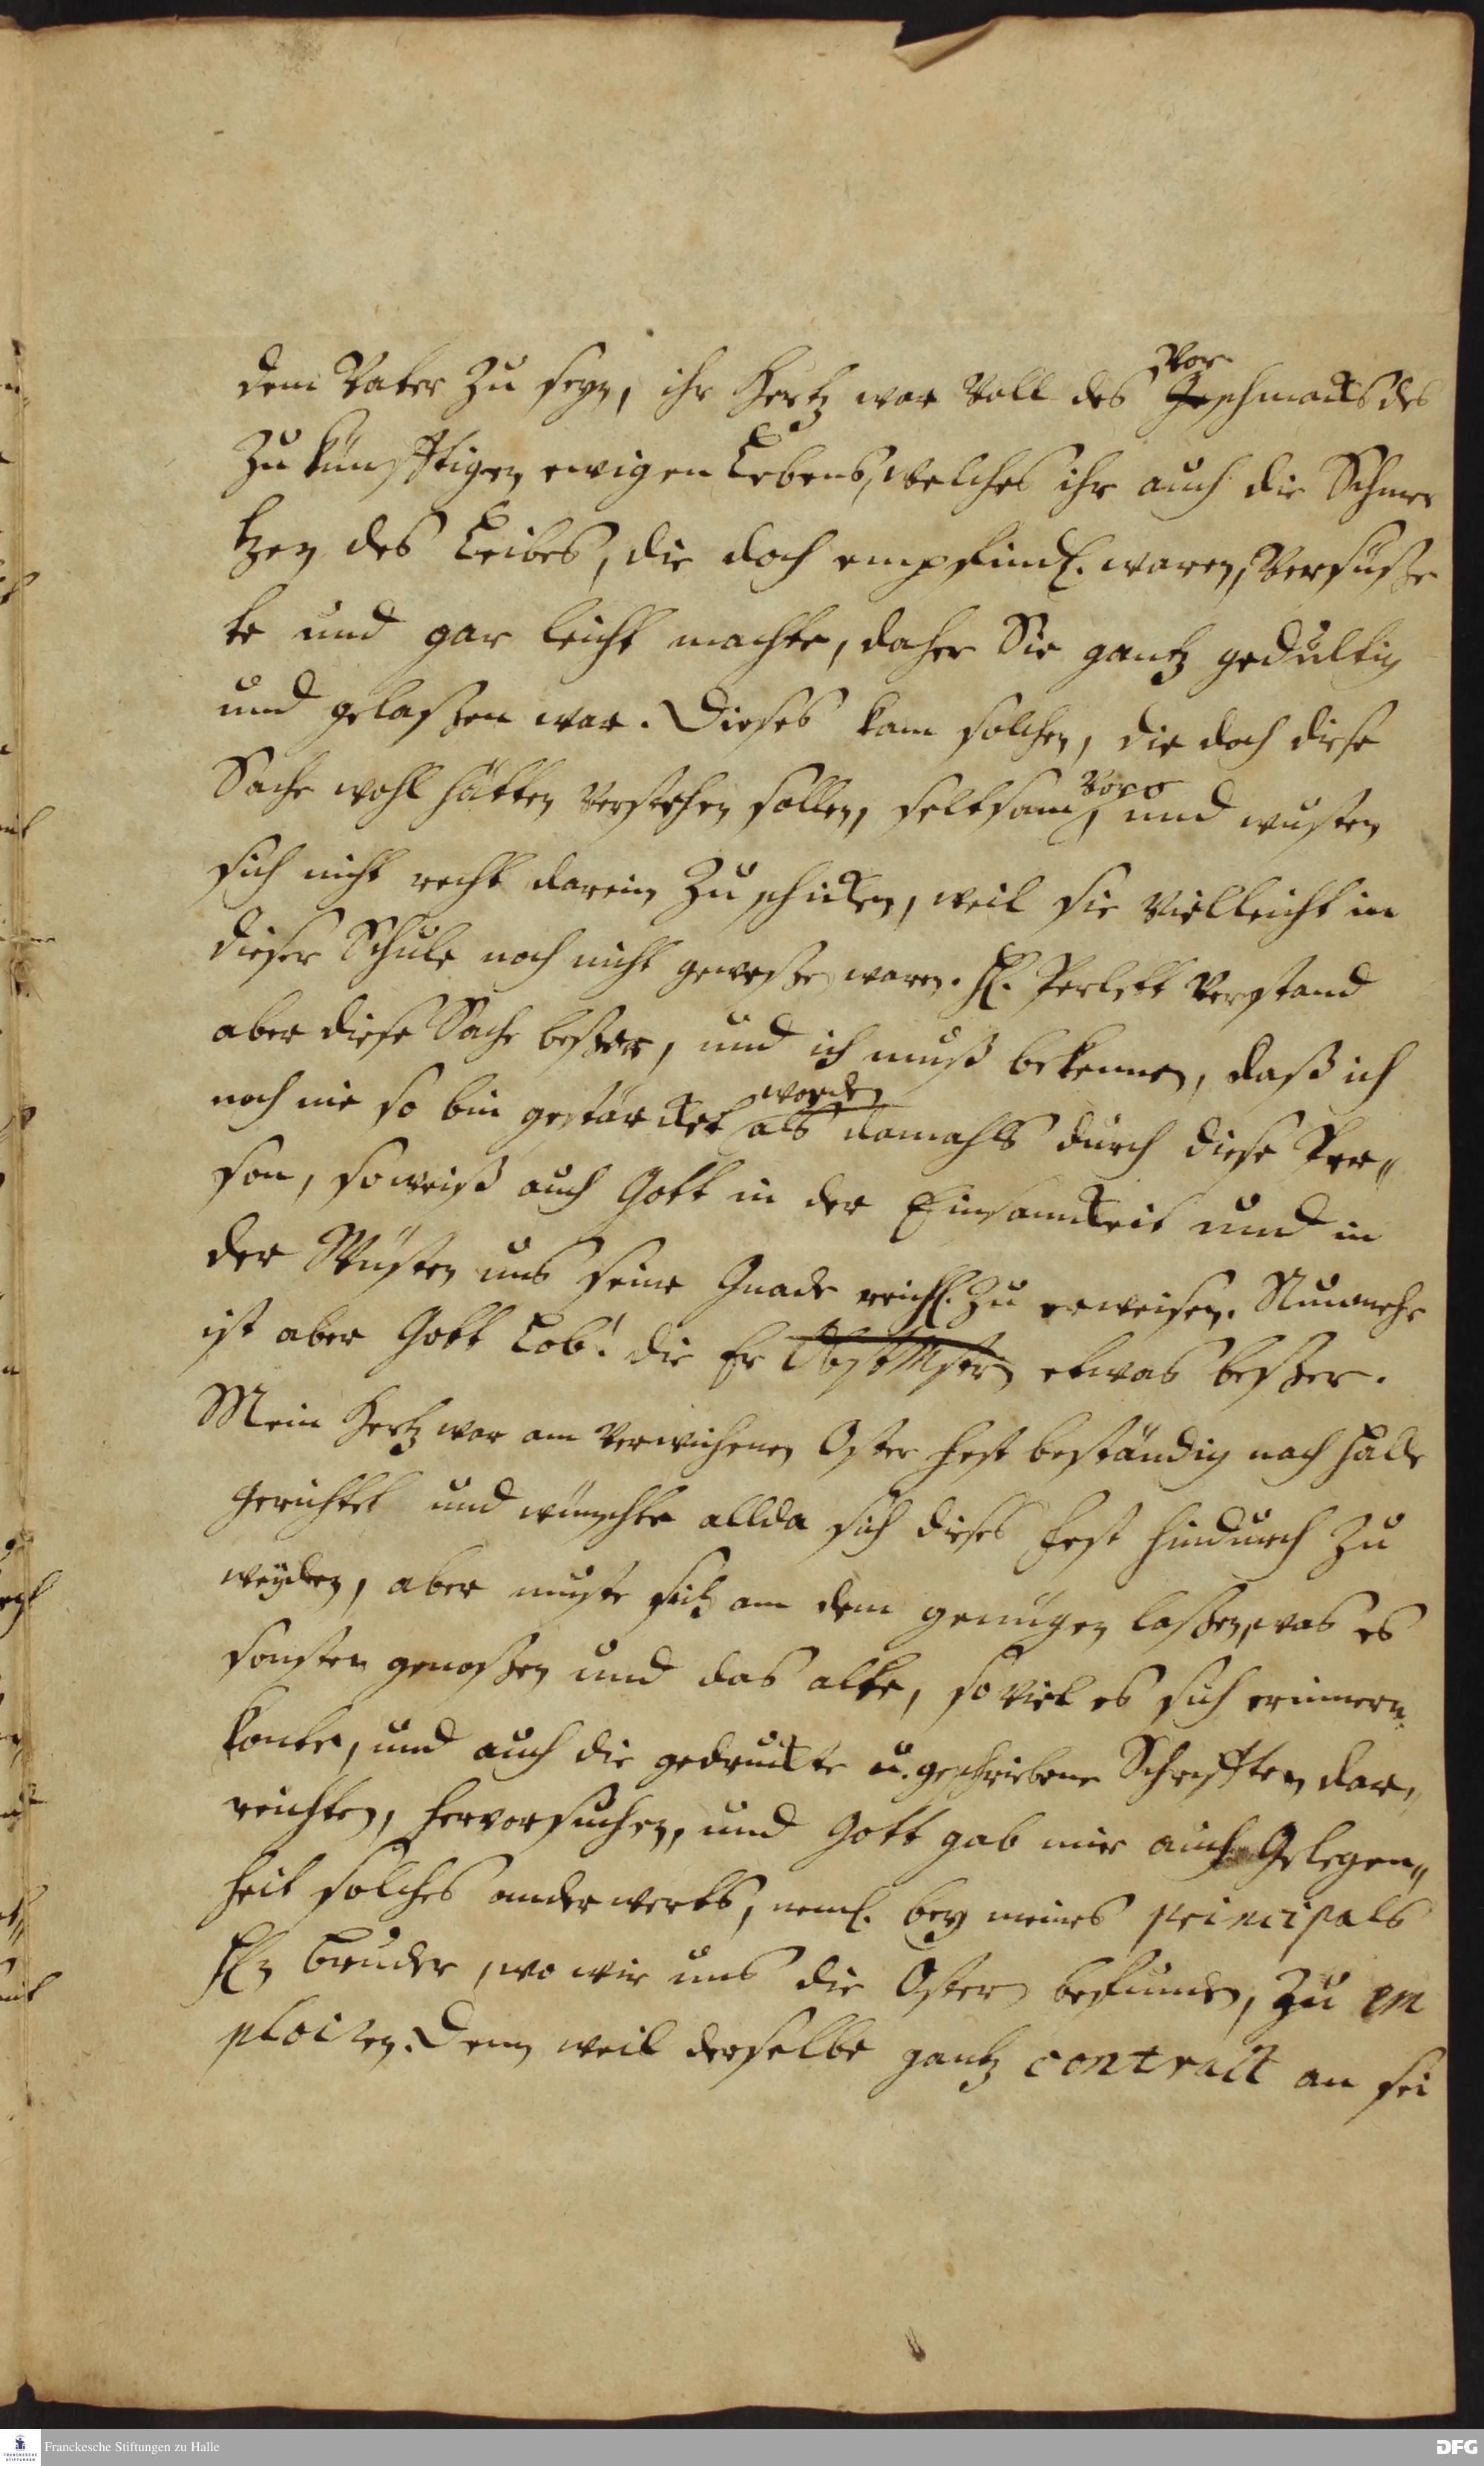 dem Vater zu seyn, ihr Hertz war voll des Vorschmacks des
zukünfftigen ewigen Lebens, welches ihr auch die Schmer
tzen des Leibes, die doch empfindl. waren, versüße
te und gar leicht machte, daher Sie gantz gedultig
und gelaßen war. Dieses kam solchen, die doch diese
Sache wohl hätten verstehen sollen, seltsam vor, und wusten
sich nicht recht darein zu schicken, weil sie vielleicht in
dieser Schule noch nicht geweße waren. H. Perlett verstand
aber diese Sache beßer, und ich muß bekennen, daß ich
noch nie so bin gestärcket worden als damahls durch diese Per„
son, so weiß auch Gott in der Einsamkeit und in
der Wüsten uns seine Gnade reichl. zu erweisen. Nunmehr
ist aber Gott Lob! die Fr etwas beßer.
Mein Hertz war am verwichenen Oster Fest beständig nach Halle
gerichtet und wünschte allda sich dieses Fest hindurch zu
weyden, aber muste sich an dem genügen laßen, was es
sonsten genoßen und das alte, so viel es sich erinnern
konte, und auch die gedruckte u. geschriebene Schrifften dar„
reichten, hervorsuchen, und Gott gab mir auch Gelegen„
heit solches anderwerts, neml. bey meines principals
Hn Bruder, wo wir uns die Ostern befunden, zu em
ploiren. Denn weil derselbe gantz contract an sei
Franckesche Stiftungen zu Halle
DFG